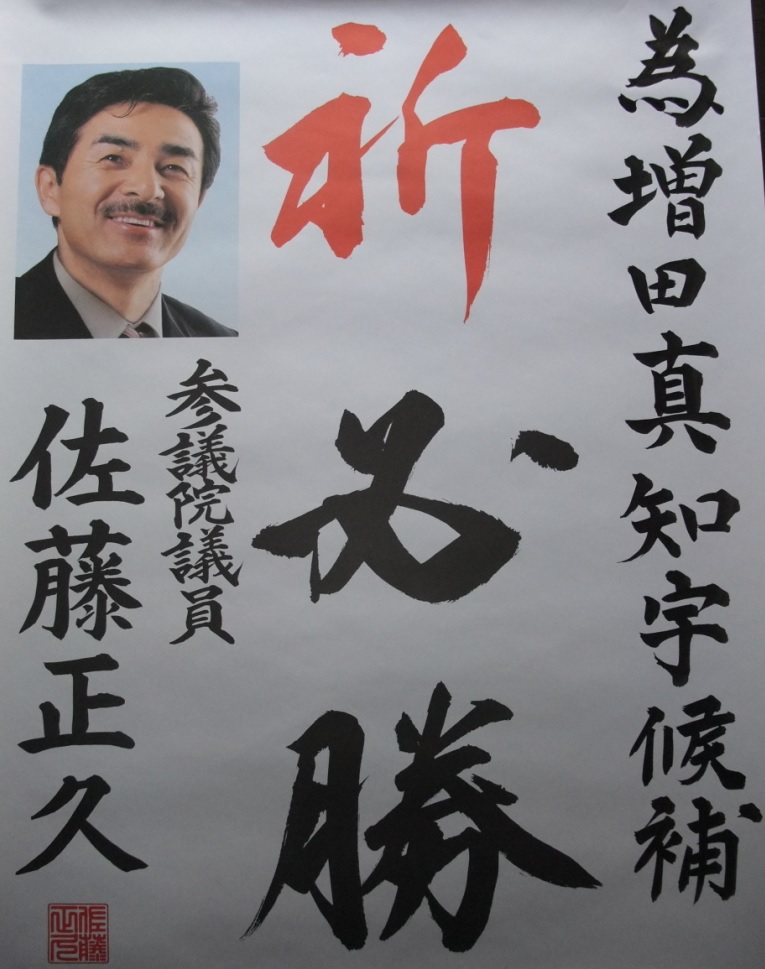 為増田真知宇候補
祈必勝
参議院議員
佐藤正久
佐藤正久